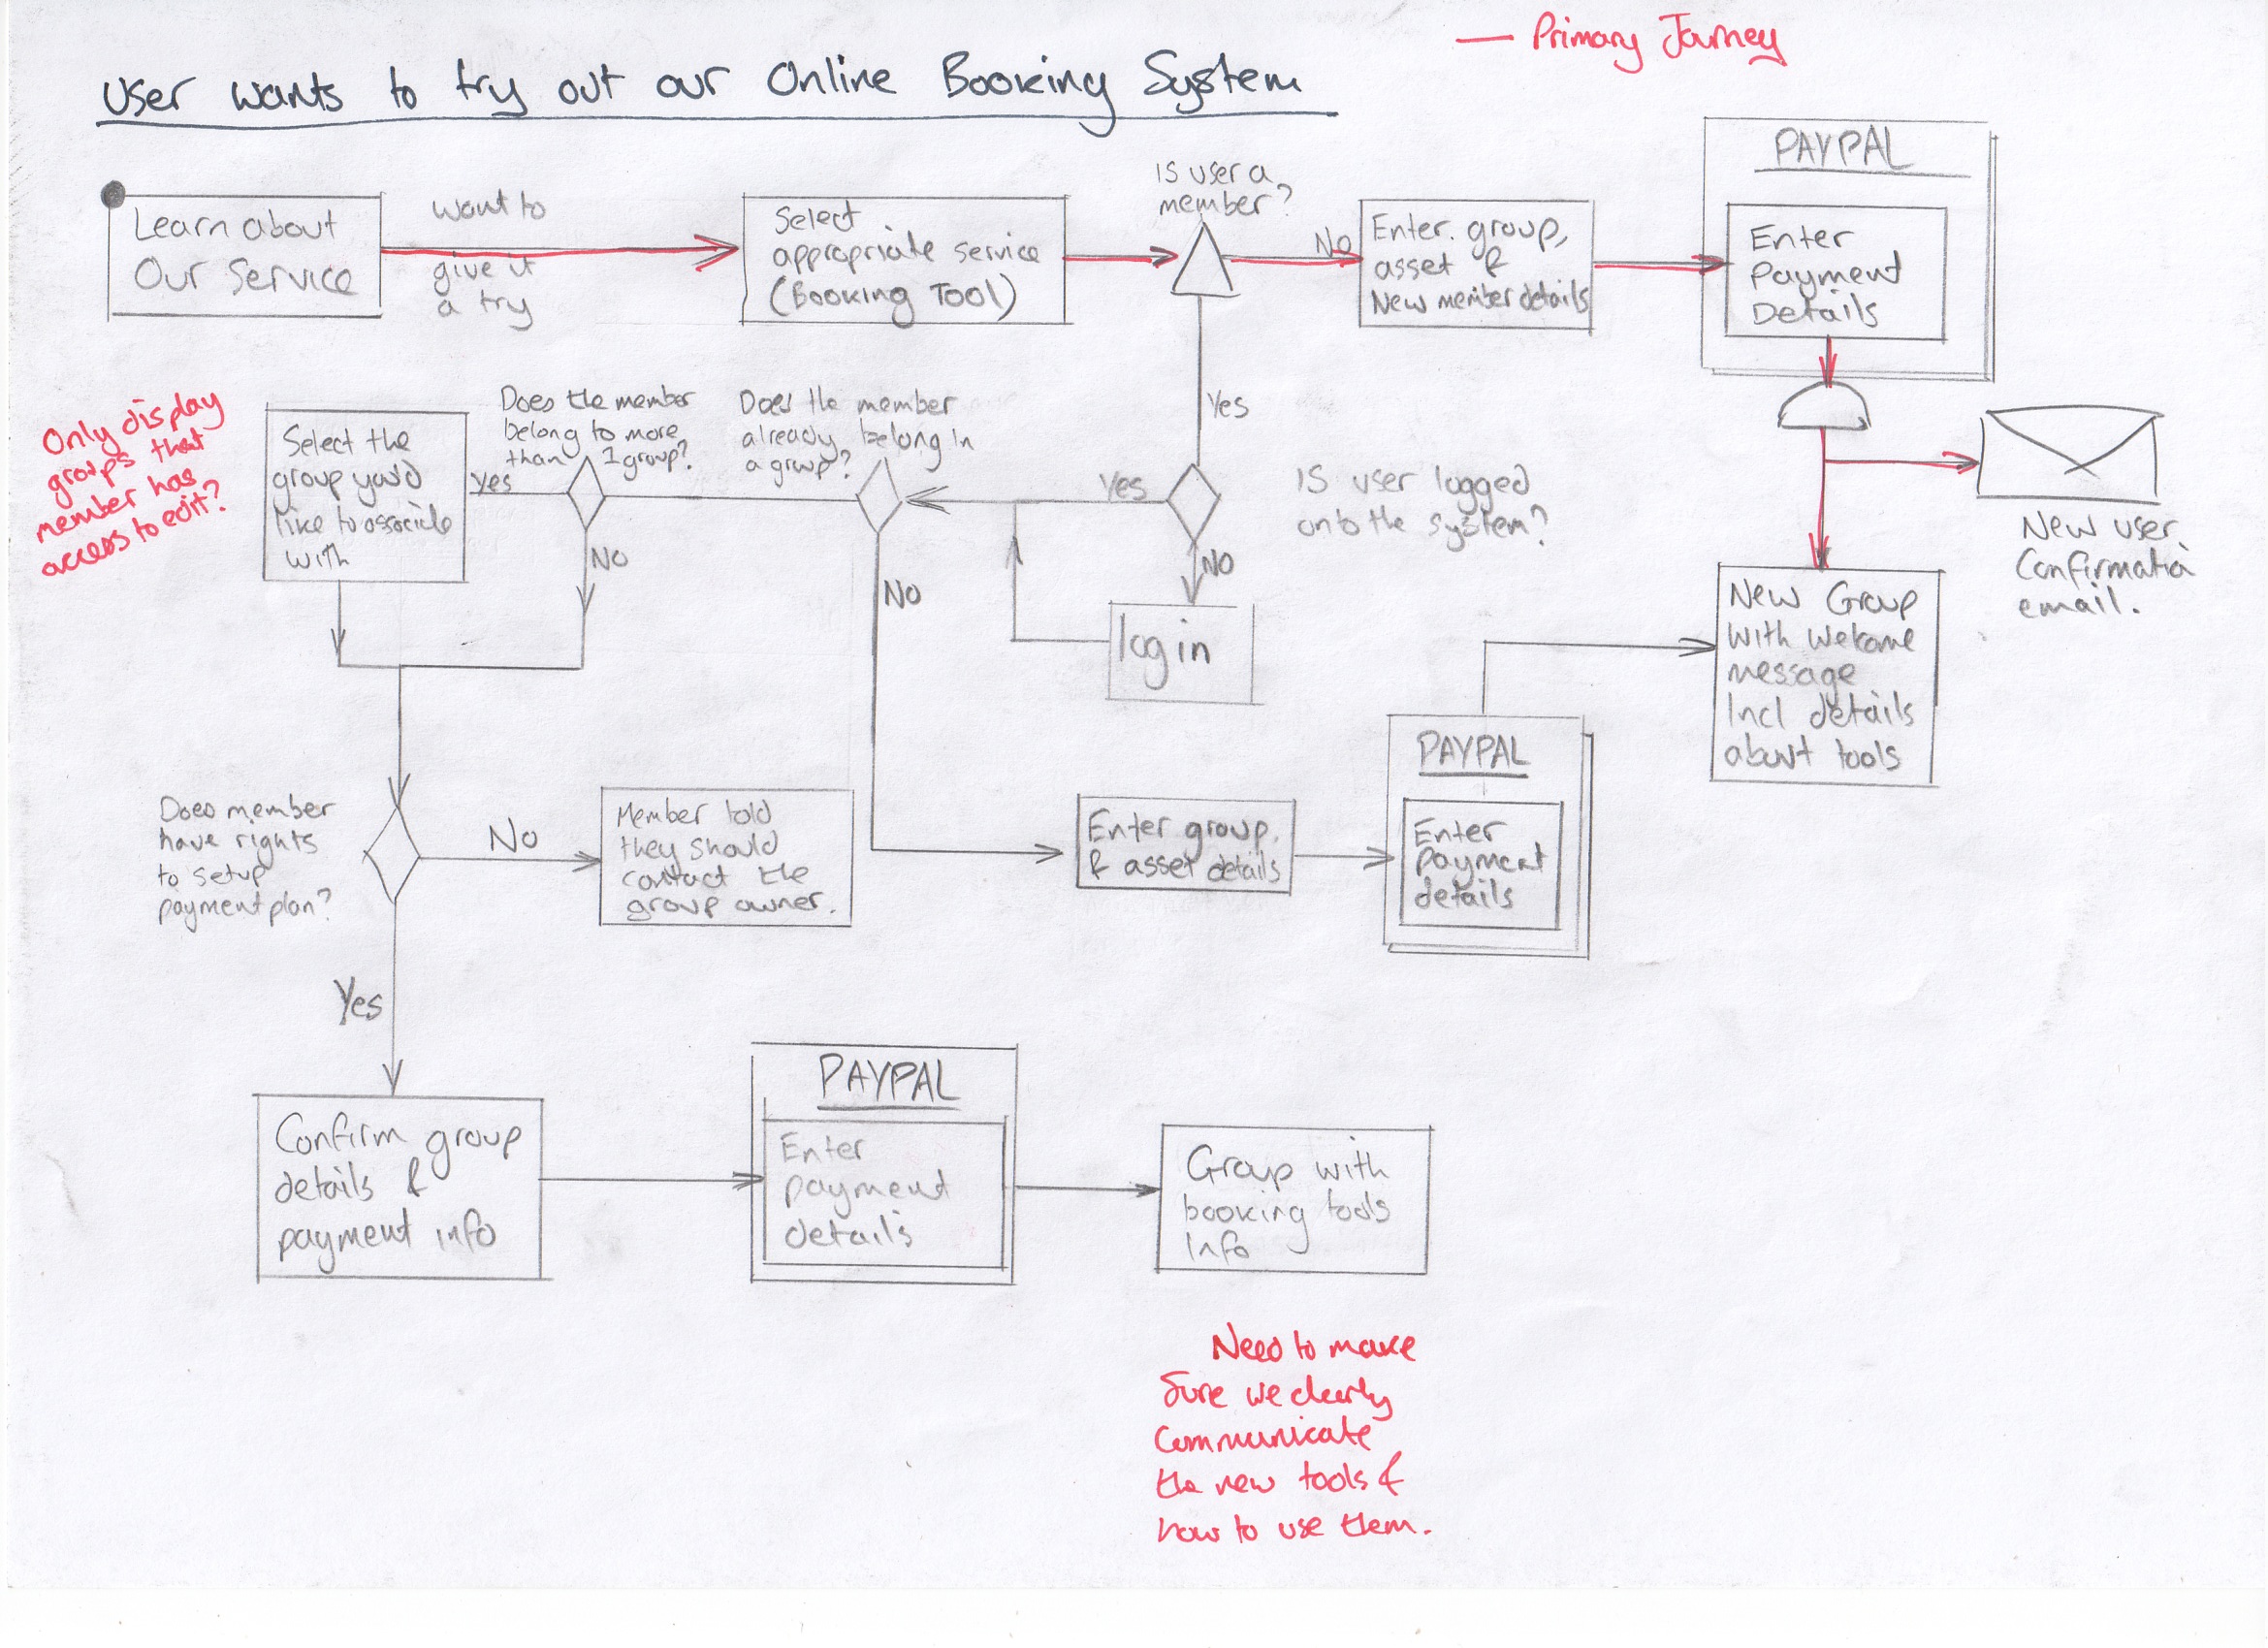 — Primary Journey
User wants to try out our Online Booking System
Learn about
Our Service
want to
give it
a try
Select
appropriate service
(Booking Tool)
Is user a
member?
No
Enter group,
asset &
New member details
PAYPAL
Enter
Payment
Details
Yes
Only display
groups that
member has
access to edit?
Select the
group you'd
like to associate
with
Yes
Does the member
belong to more
than 1 group?
No
Does the member
already belong in
a group?
No
Yes
Is user logged
onto the system?
No
log in
New user
Confirmation
email.
New Group
with welcome
message
Incl details
about tools
Does member
have rights
to setup
payment plan?
No
Member told
they should
contact the
group owner.
Enter group
& asset details
PAYPAL
Enter
payment
details
Yes
Confirm group
details &
payment info
PAYPAL
Enter
payment
details
Group with
booking tools
Info
Need to make
Sure we clearly
Communicate
the new tools &
how to use them.